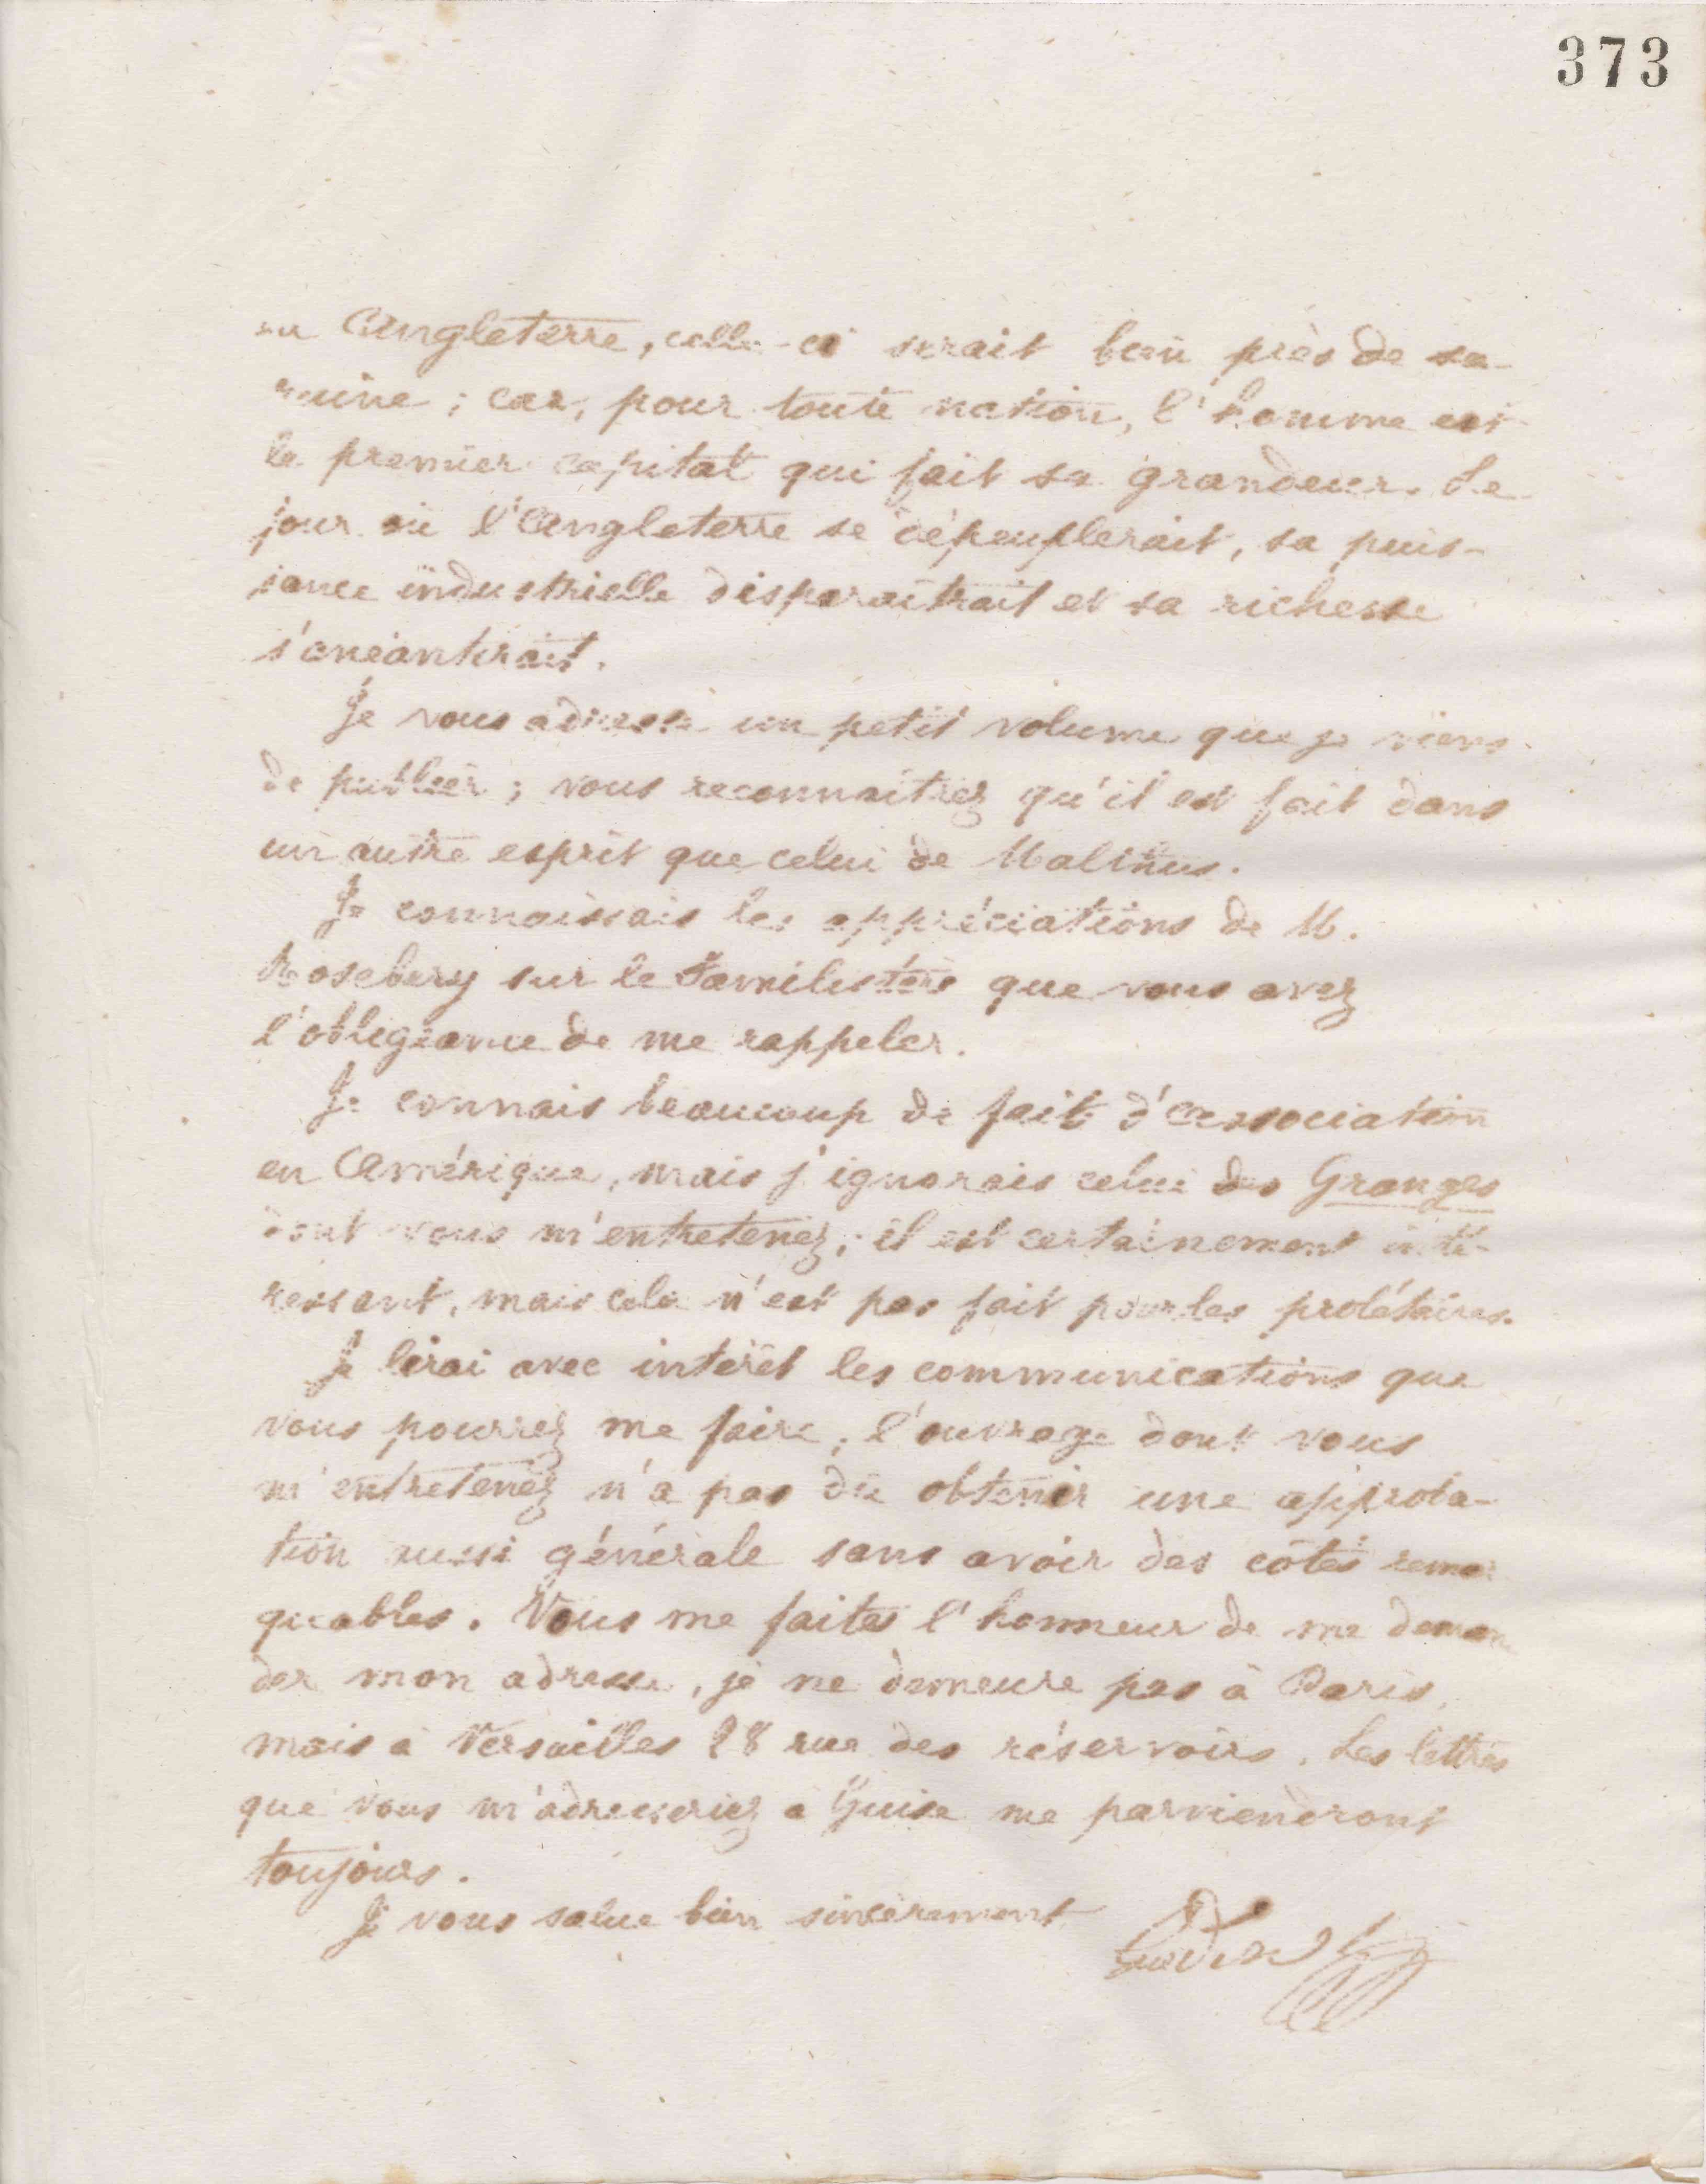 373
en Angleterre, celle-ci serait bien près de sa
ruine ; car, pour toute nation, l'homme est
le premier capital qui fait sa grandeur. Le
jour où l'Angleterre se dépeuplerait, sa puis-
sance industrielle disparaîtrait et sa richesse
s'anéantirait.
Je vous adresse un petit volume que je viens
de publier ; vous reconnaîtrez qu'il est fait dans
un autre esprit que celui de Malthus.
Je connaissais les appréciations de M.
Rosebery sur le Familistère que vous avez
l'obligeance de me rappeler.
Je connais beaucoup de faits d'association
en Amérique, mais j'ignorais celui des Granges
dont vous m'entretenez ; il est certainement inté-
ressant, mais cela n'est pas fait pour les prolétaires.
Je lirai avec intérêt les communications que
vous pourrez me faire ; l'ouvrage dont vous
m'entretenez n'a pas dû obtenir une approba-
tion aussi générale sans avoir des côtés remar
quables. Vous me faites l'honneur de me deman
der mon adresse, je ne demeure pas à Paris,
mais à Versailles 28 rue des réservoirs. Les lettres
que vous m'adresseriez à Guise me parviendront
toujours.
Je vous salue bien sincèrement
Godin